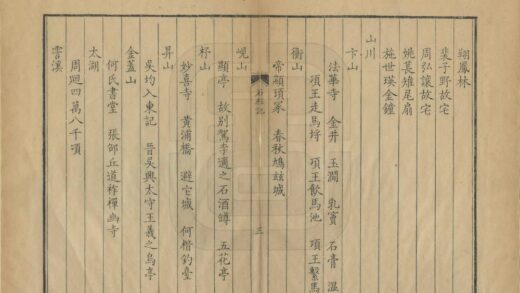 翔鳳林
裴子野故宅
周弘讓故宅
姚萇雉尾扇
施世瑛金鐘
山川
卞山
法華寺 金井 玉澗 乳竇 石膏 溫
項王走馬埒 項王飲馬池 項王繫馬
衡山
帝顓頊冢 春秋鳩茲城
石柱記
三
峴山
顯亭 故別駕李適之石酒罇 五花亭
杼山
妙喜寺 黃浦橋 避它城 何楷釣臺
昇山
吳均入東記 晉吳興太守王羲之烏亭
金蓋山
何氏書堂 張邵丘道祚禪幽寺
太湖
周迴四萬八千頃
霅溪